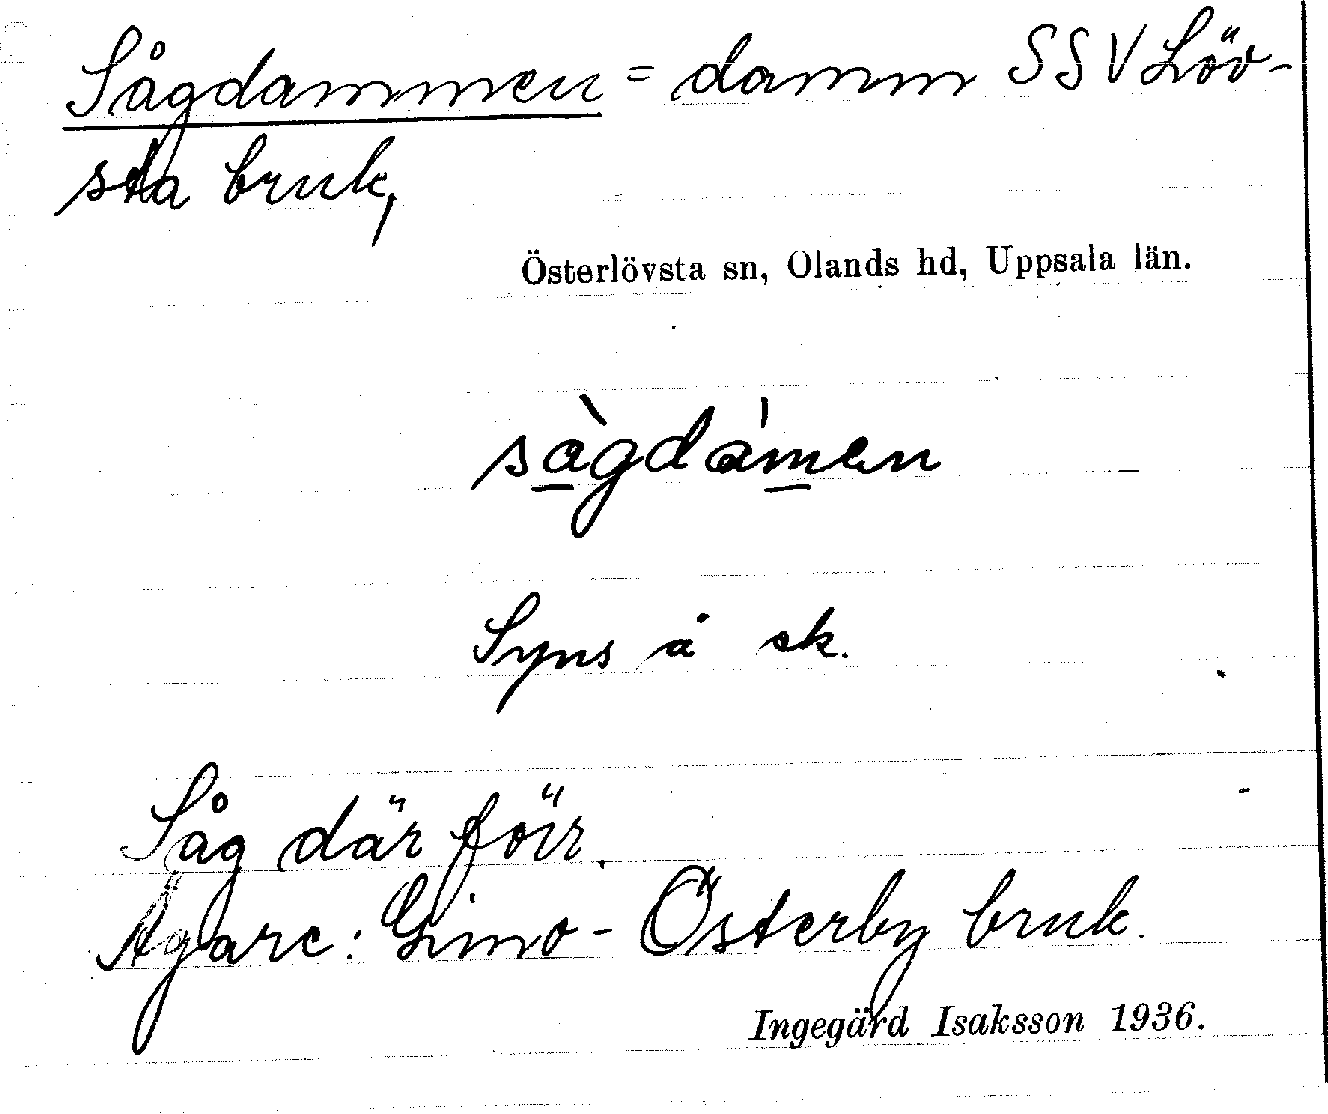 Sågdammen = damm SSV Löv-
sta bruk,
Österlövsta sn, Olands hd, Uppsala län.
sàgdámen
Syns å ek.
Såg där förr.
Ägare: Gimo-Österby bruk.
Ingegärd Isaksson 1936.